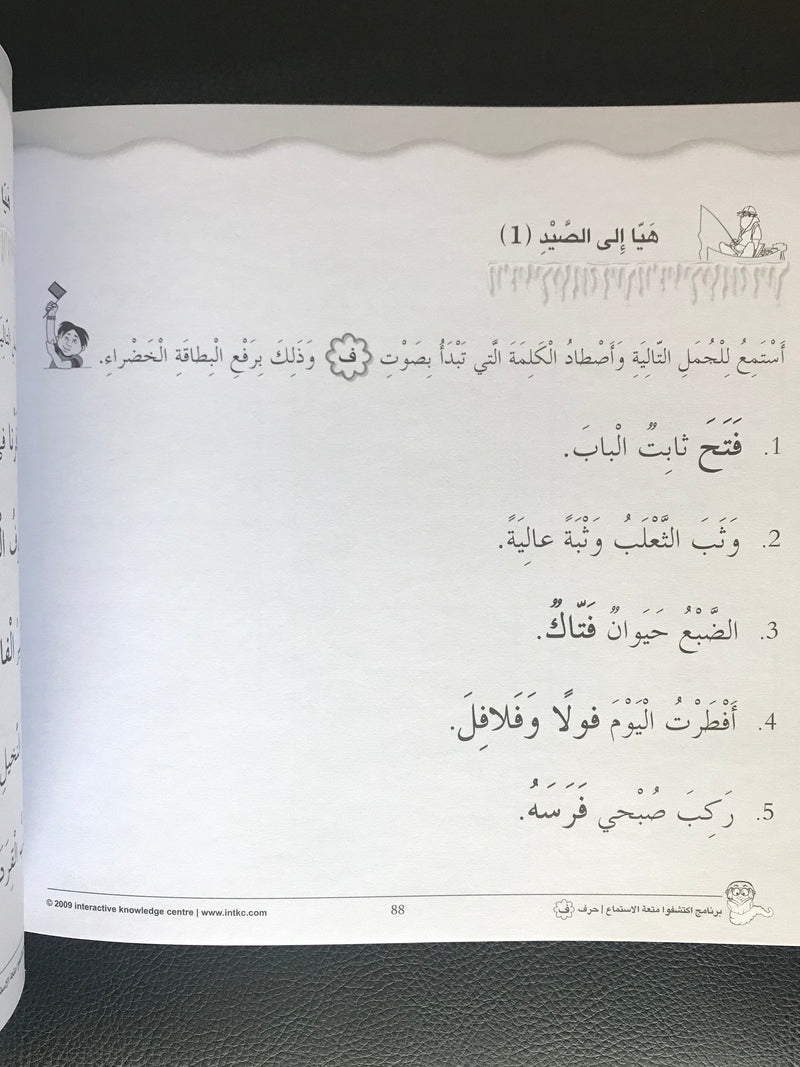 هَيّا إِلى الصَّيْدِ (1)
أَسْتَمِعُ لِلْجُمَلِ التّالِيَةِ وَأَصْطادُ الْكَلِمَةَ الَّتي تَبْدَأُ بِصَوْتِ ف وَذَلِكَ بِرَفْعِ الْبِطاقَةِ الْخَضْراءِ.
1. فَتَحَ ثابِتٌ الْبابَ.
2. وَثَبَ الثَّعْلَبُ وَثْبَةً عالِيَةً.
3. الضَّبْعُ حَيَوانٌ فَتّاكٌ.
4. أَفْطَرْتُ الْيَوْمَ فولًا وَفَلافِلَ.
5. رَكِبَ صُبْحي فَرَسَهُ.
برنامج اكتشفوا متعة الاستماع | حرف ف
88
© 2009 interactive knowledge centre | www.intkc.com